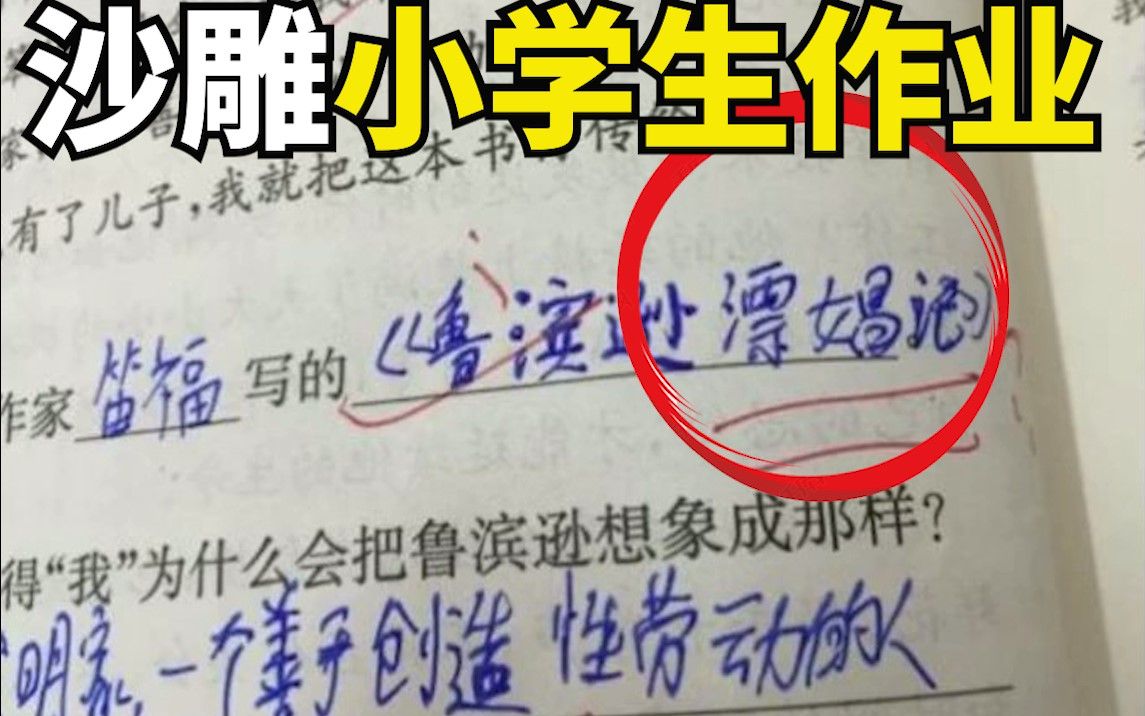 沙雕小学生作业
有了儿子，我就把这本书传给
作家笛福写的《鲁滨逊漂娼记》
得“我”为什么会把鲁滨逊想象成那样？
明家，一个善于创造性劳动的人